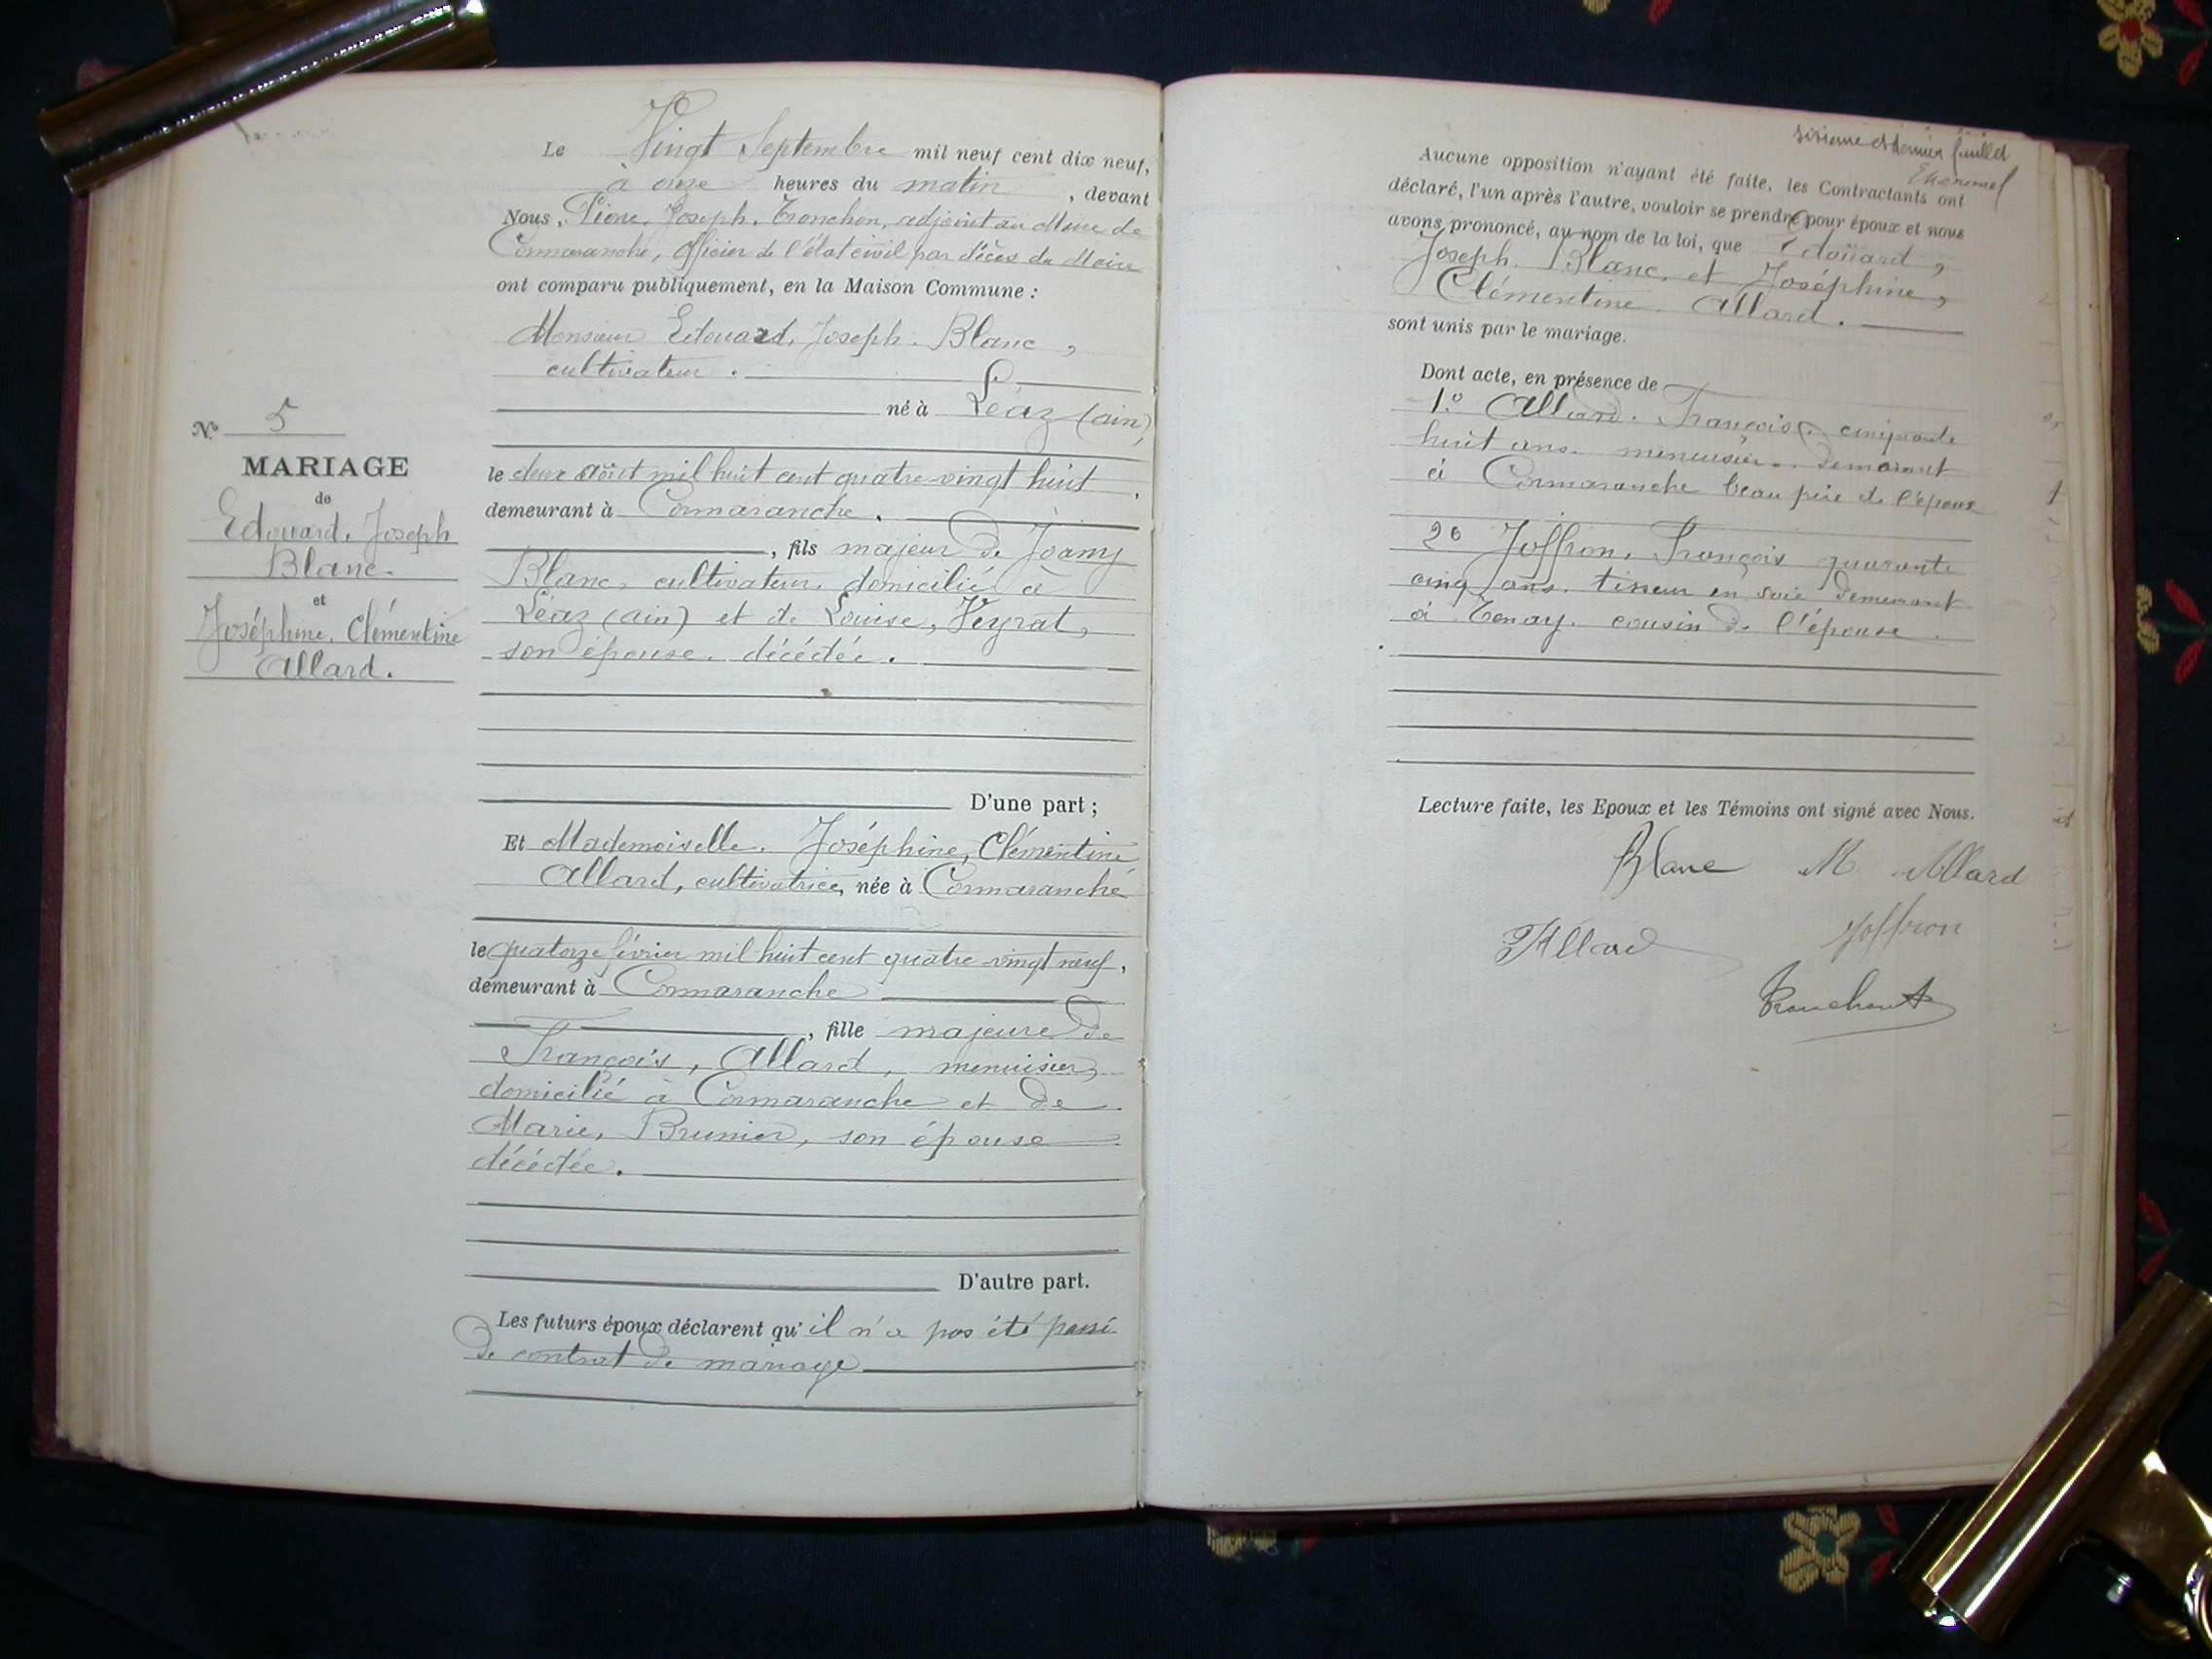 Le Vingt Septembre mil neuf cent dix neuf,
à onze heures du matin, devant
Nous, Pierre, Joseph, Tronchon, adjoint au Maire de
Cormaranche, officier de l'état civil par décès du Maire
ont comparu publiquement, en la Maison Commune :
Monsieur Edouard, Joseph. Blanc,
cultivateur.
né à Léaz (ain),
le deux août mil huit cent quatre-vingt huit,
demeurant à Cormaranche.
, fils majeur de Joany
Blanc, cultivateur, domicilié à
Léaz (ain) et de Louise, Veyrat,
son épouse, décédée.
D'une part ;
N° 5
MARIAGE
de
Edouard, Joseph
Blanc.
et
Joséphine, Clémentine
Allard.
Et Mademoiselle. Joséphine, Clémentine
Allard, cultivatrice, née à Cormaranche
le quatorze février mil huit cent quatre-vingt neuf,
demeurant à Cormaranche
, fille majeure de
François, Allard, menuisier,
domicilié à Cormaranche et de
Marie, Brunier, son épouse
décédée.
D'autre part.
Les futurs époux déclarent qu'il n'a pas été passé
de contrat de mariage
sixième et dernier feuillet
Aucune opposition n'ayant été faite, les Contractants ont
déclaré, l'un après l'autre, vouloir se prendre pour époux et nous
avons prononcé, au nom de la loi, que Edouard,
Joseph. Blanc, et Joséphine,
Clémentine Allard.
sont unis par le mariage.
Dont acte, en présence de
1.º Allard. François, cinquante
huit ans. menuisier. demeurant
à Cormaranche beau père de l'époux
2º Joffron, François quarante
cinq ans. tisseur en soie demeurant
à Tenay. cousin de l'épouse.
Lecture faite, les Epoux et les Témoins ont signé avec Nous.
Blanc M Allard
F Allard Joffron